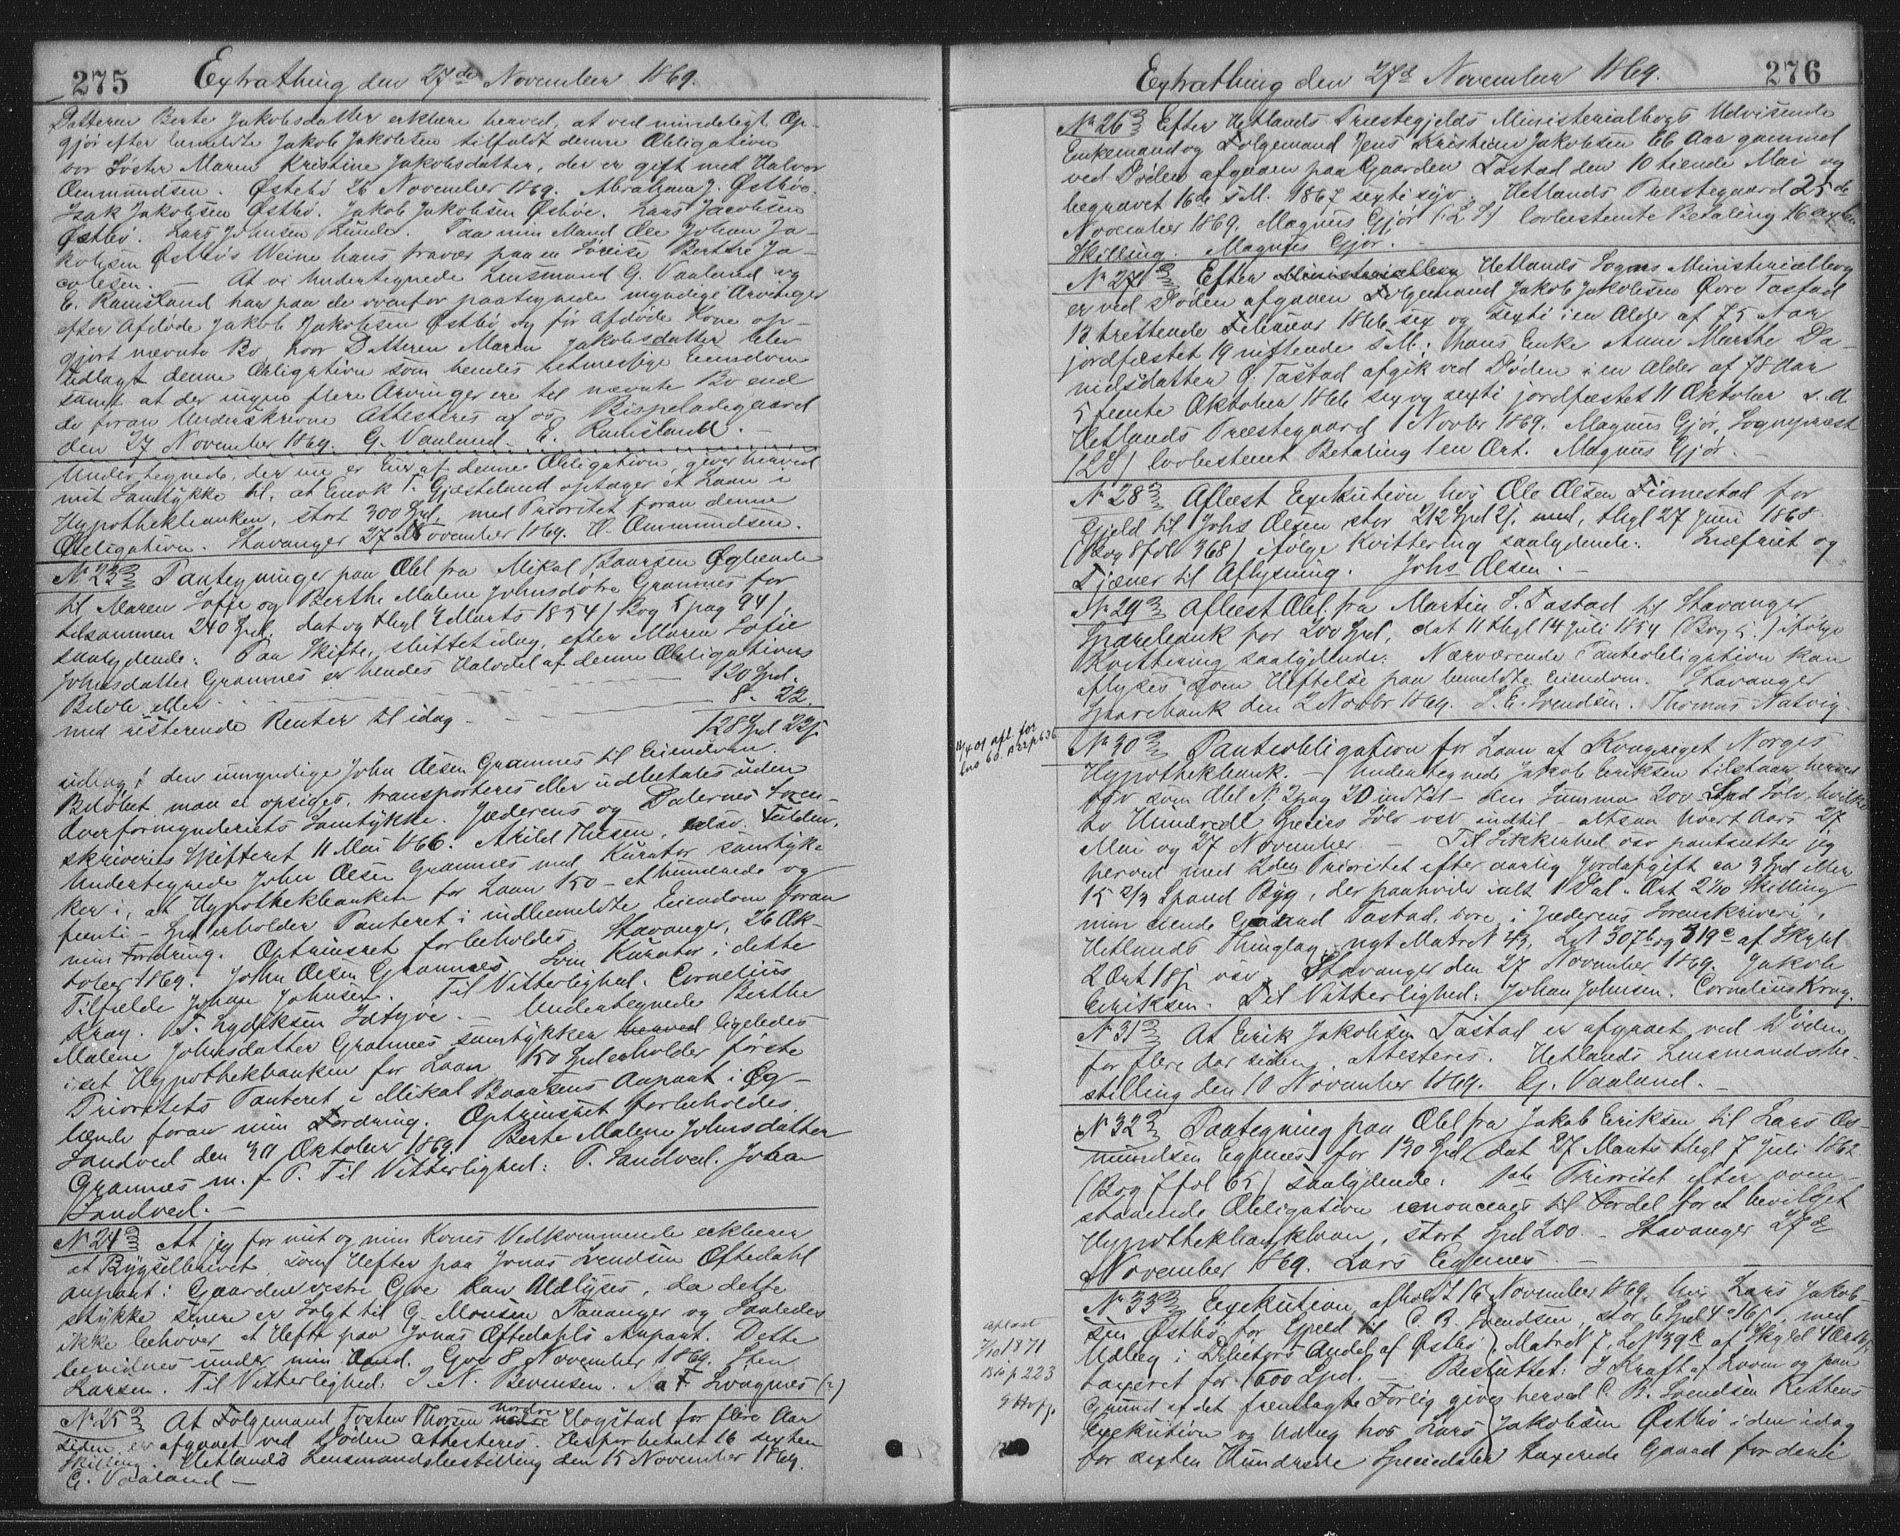 275 Extrathing den 27de November 1869.
Datteren Berte Jakobsdatter erklære herved, at ved mindeligt Op-
gjør efter bemeldte Jakob Jakobsen tilfaldt denne Obligation
vor Søster Maren Kristine Jakobsdatter, der er gift med Halvor
Ommundsen. Østebø 26 November 1869. Abraham J. Østbø.
Isak Jakobsen Østbø. Jakob Jakobsen Østbøe. Lars Jacobsen
Østbø. Lars Johnsen Runde. Paa min Mand Ole Johan Ja-
kobsen Østbøs Veine hans fravær paa en Søreise Berthe Ja-
cobsen. — At vi Undertegnede Lensmand G. Vaaland og
E. Ramsland har paa de ovenfor paategnede myndige Arvinger
efter Afdøde Jakob Jakobsen Østbø og før afdøde Kone op-
gjort nævnte Bo, hvor Datteren Maren Jakobsdatter blev
udlagt denne Obligation som hendes retmessige Eiendom
samt at der ingen flere Arvinger ere til nævnte Bo end
de foran Underskrevne Attesteres af os. Bispeladegaard
den 27 November 1869. G. Vaaland. E. Ramsland. —
Undertegnede, der nu er Eier af denne Obligation, giver herved
mit Samtykke til, at Enok T. Gjesteland optager et Laan i
Hypothekbanken, stort 300 Spd. med Prioritet foran denne
Obligation. Stavanger 27 November 1869. H. Ommundsen.
No 23 Paategninger paa Obl fra Mikal Baarsen Øglænde
til Maren Sofie og Berthe Malene Johnsdøtre Grannes for
tilsammen 240 Spd, dat og thgl 2 Marts 1854 (Bog 5 pag 94)
saalydende: Paa Skifte, sluttet idag, efter Maren Sofie
Johnsdatter Grannes er hendes Halvdel af denne Obligations
Beløb eller 120 Spd.
med resterende Renter til idag 8. 22.
128 Spd 22 s
udlagt den umyndige John Olsen Grannes til Eiendom.
Beløbet maa ei opsiges, transporteres eller udbetales uden
Overformynderiets Samtykke. Jæderens og Dalernes Soren-
skriveries Skifteret 11 Mai 1866. Arild Thesen, edsv. Fuldm.
Undertegnede John Olsen Grannes med Kurator samtyk-
ker i, at Hypothekbanken for Laan 150 – et hundrede og
femti – Spd erholder Panteret i indbemeldte Eiendom foran
min Fordring. Optrinsret forbeholdes. Stavanger, 26 Ok-
tober 1869. John Olsen Grannes. Som Kurator i dette
Tilfælde Johan Johnsen. Til Vitterlighed: Cornelius
Krag. T. Lydiksen Sætyve. — Undertegnede Berthe
Malene Johnsdatter Grannes samtykker herved ligeledes
i at Hypothekbanken for Laan 150 Spd erholder første
Prioritets Panteret i Mikal Baarsens Anpart i Øg-
lænde foran min Fordring. Optrinsret forbeholdes.
Sandved den 30 Oktober 1869. Berte Malene Johnsdatter
Grannes m. f. P. Til Vitterlighed: T. Sandved. Johan
Sandved. —
No 24 At jeg for mit og min Kones Vedkommende erklærer
at Bygselbrevet, som Hefter paa Jonas Svendsen Oftedahl
anpart i Gaarden vestre Goe kan Udlyses, da dette
stykke senere er solgt til G. Monsen Stavanger og saaledes
ikke behøver at Hefte paa Jonas Oftedahls Anpart. Dette
bevidnes under min Haand. Goe 8 November 1869. Sten
Larsen. Til Vitterlighed: J. N. Bevensen.
No 25 At Folgemand Tosten Thorsen nordre Hogstad for flere Aar
siden er afgaaet ved Døden attesteres. Herfor betalt 16 sexten
Skilling. Hetlands Lensmandsbestilling den 15 November 1869.
G. Vaaland —
Extrathing den 27d November 1869. 276
No 26 Efter Hetlands Præstegjelds Ministerialbogs Udvisende
Enkemand og Folgemand Jens Kristian Jakobsen 66 Aar gammel
ved Døden afgaaen paa Gaarden Tastad den 10 tiende Mai og
begravet 16de s. M. 1867 sexti syv. Hetlands Præstegaard 25de
November 1869. Magnus Gjør (L. S.) lovbestemte Betaling 16 sexten
Skilling. Magnus Gjør.
No 27 Efter Ministerialbog Hetlands Sogns Ministerialbog
er ved Døden afgaaen Folgemand Jakob Jakobsen Øvre Tastad
13 trettende Februar 1866 sex og sexti i en Alder af 75 Aar
jordfæstet 19 nittende s. M.; hans Enke Anne Marthe Da-
nielsdatter Ø. Tastad afgik ved Døden i en Alder af 78 Aar
5 femte Oktober 1866 sex og sexti jordfæstet 11 Oktober s. M
Hetlands Præstegaard 1 Novbr 1869. Magnus Gjør, Sogneprest
(L. S.) Lovbestemt Betaling 1 en Ort. Magnus Gjør. —
No 28 Aflæst Exekution hos Ole Olsen Finnestad for
Gjeld til Johs Olsen stor 212 Spd 2 s. med, thgl 27 Juni 1868
(Bog 8 fol 368) ifølge Kvittering saalydende: Indfriet og
tjener til Aflysning. Johs Olsen. —
No 29 Aflæst Obl. fra Martin S. Tastad til Stavanger
Sparebank for 200 Spd, dat 11 thgl 14 Juli 1854 (Bog 5.) ifølge
Kvittering saalydende: Nærværende Panteobligation kan
aflyses som Heftelse paa bemeldte Eiendom. Stavanger
Sparebank den 2 Novbr 1869. S. E. Svendsen. Thomas Natvig.
No 30 Panteobligation for Laan af Kongeriget Norges
Hypothekbank. — Undertegnede Jakob Eriksen tilstaar herved
osv som Obl No 2 pag 20 indtil – den Summa 200 Spd Sølv, hvilke
to Hundrede Species Sølv osv indtil – altsaa hvert Aars 27
Mai og 27 November. — Til Sikkerhed osv pantsætter jeg
herved med 2den Prioritet efter aarlig Jordafgift ca 3 Spd eller
15 2/3 Spand Byg, der paahvile alt 1 Dal. Ort 2 1/10 Skilling
min eiende Gaard Tastad, øvre, i Jæderens Sorenskriveri,
Hetlands Thinglag, nyt Matr N 43, LN 307b og 319c af Skyld
2 Ort 18 s osv. Stavanger den 27 November 1869. Jakob
Eriksen. Til Vitterlighed: Johan Johnsen. Cornelius Krag.
No 31 At Erik Jakobsen Tastad er afgaaet ved Døden
for flere Aar siden, attesteres. Hetlands Lensmandsbe-
stilling den 10 November 1869. G. Vaaland. —
No 32 Paategning paa Obl fra Jakob Eriksen til Lars As-
mundsen Egenes for 130 Spd, dat 27 Marts thgl 7 Juli 1862
(Bog 7 fol 65) saalydende: 1ste Prioritet efter oven-
staaende Obligation renonceres til Fordel for et bevilget
Hypothekbanklaan, stort Spd 200. – Stavanger 27de
November 1869. Lars Egenes. —
No 33 Exekution, afholdt 16 November 1869 hos Lars Jakob-
sen Østbø for Gjeld til C. B. Svendsen, stor 6 Spd 4 o 16 s, med
Udlæg i Debitors Andel af Østbø, Matr N 7, LN 39k af Skyld
taxeret for 1600 Spd. — Besluttet: I Kraft af Loven og paa
Grund af det fremlagte Forlig gives herved C. B. Svendsen Rettens
Exekution og Udlæg hos Lars Jakobsen Østbø i den idag
for sexten Hundrede Speciedaler taxerede Gaard for denli
aflæst
1871
Bb 10 p 223